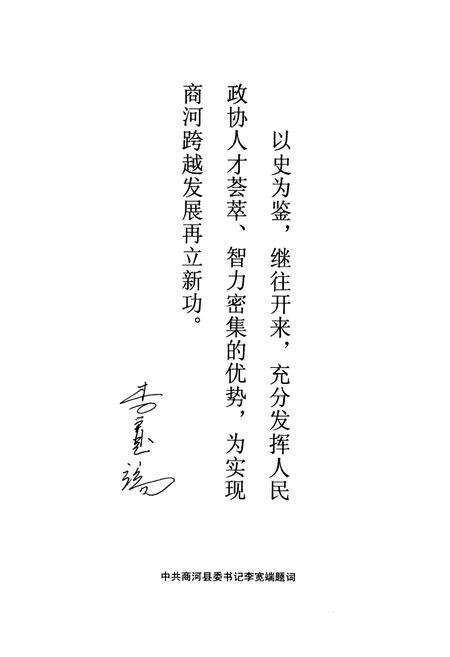 以史为鉴，继往开来，充分发挥人民
政协人才荟萃、智力密集的优势，为实现
商河跨越发展再立新功。
李宽端
中共商河县委书记李宽端题词